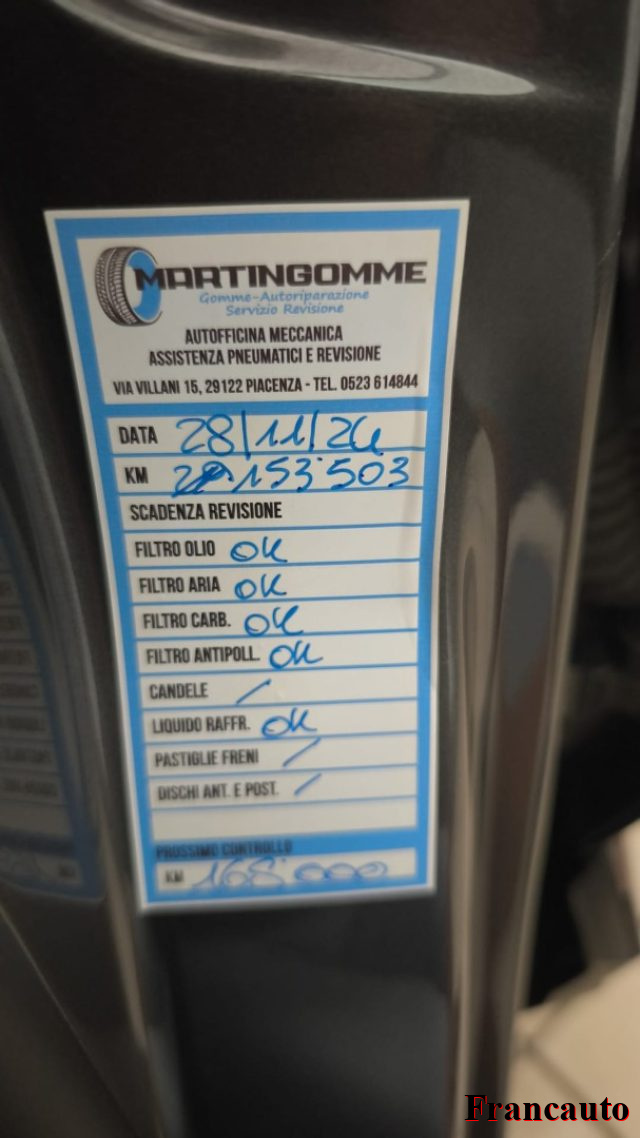 MARTINGOMME
Gomme-Autoriparazione
Servizio Revisione
AUTOFFICINA MECCANICA
ASSISTENZA PNEUMATICI E REVISIONE
VIA VILLANI 15, 29122 PIACENZA - TEL. 0523 614844
DATA 28/11/24
KM 153'503
SCADENZA REVISIONE
FILTRO OLIO OK
FILTRO ARIA OK
FILTRO CARB. OK
FILTRO ANTIPOLL. OK
CANDELE /
LIQUIDO RAFFR. OK
PASTIGLIE FRENI /
DISCHI ANT. E POST. /
PROSSIMO CONTROLLO
KM 168'000
Francauto